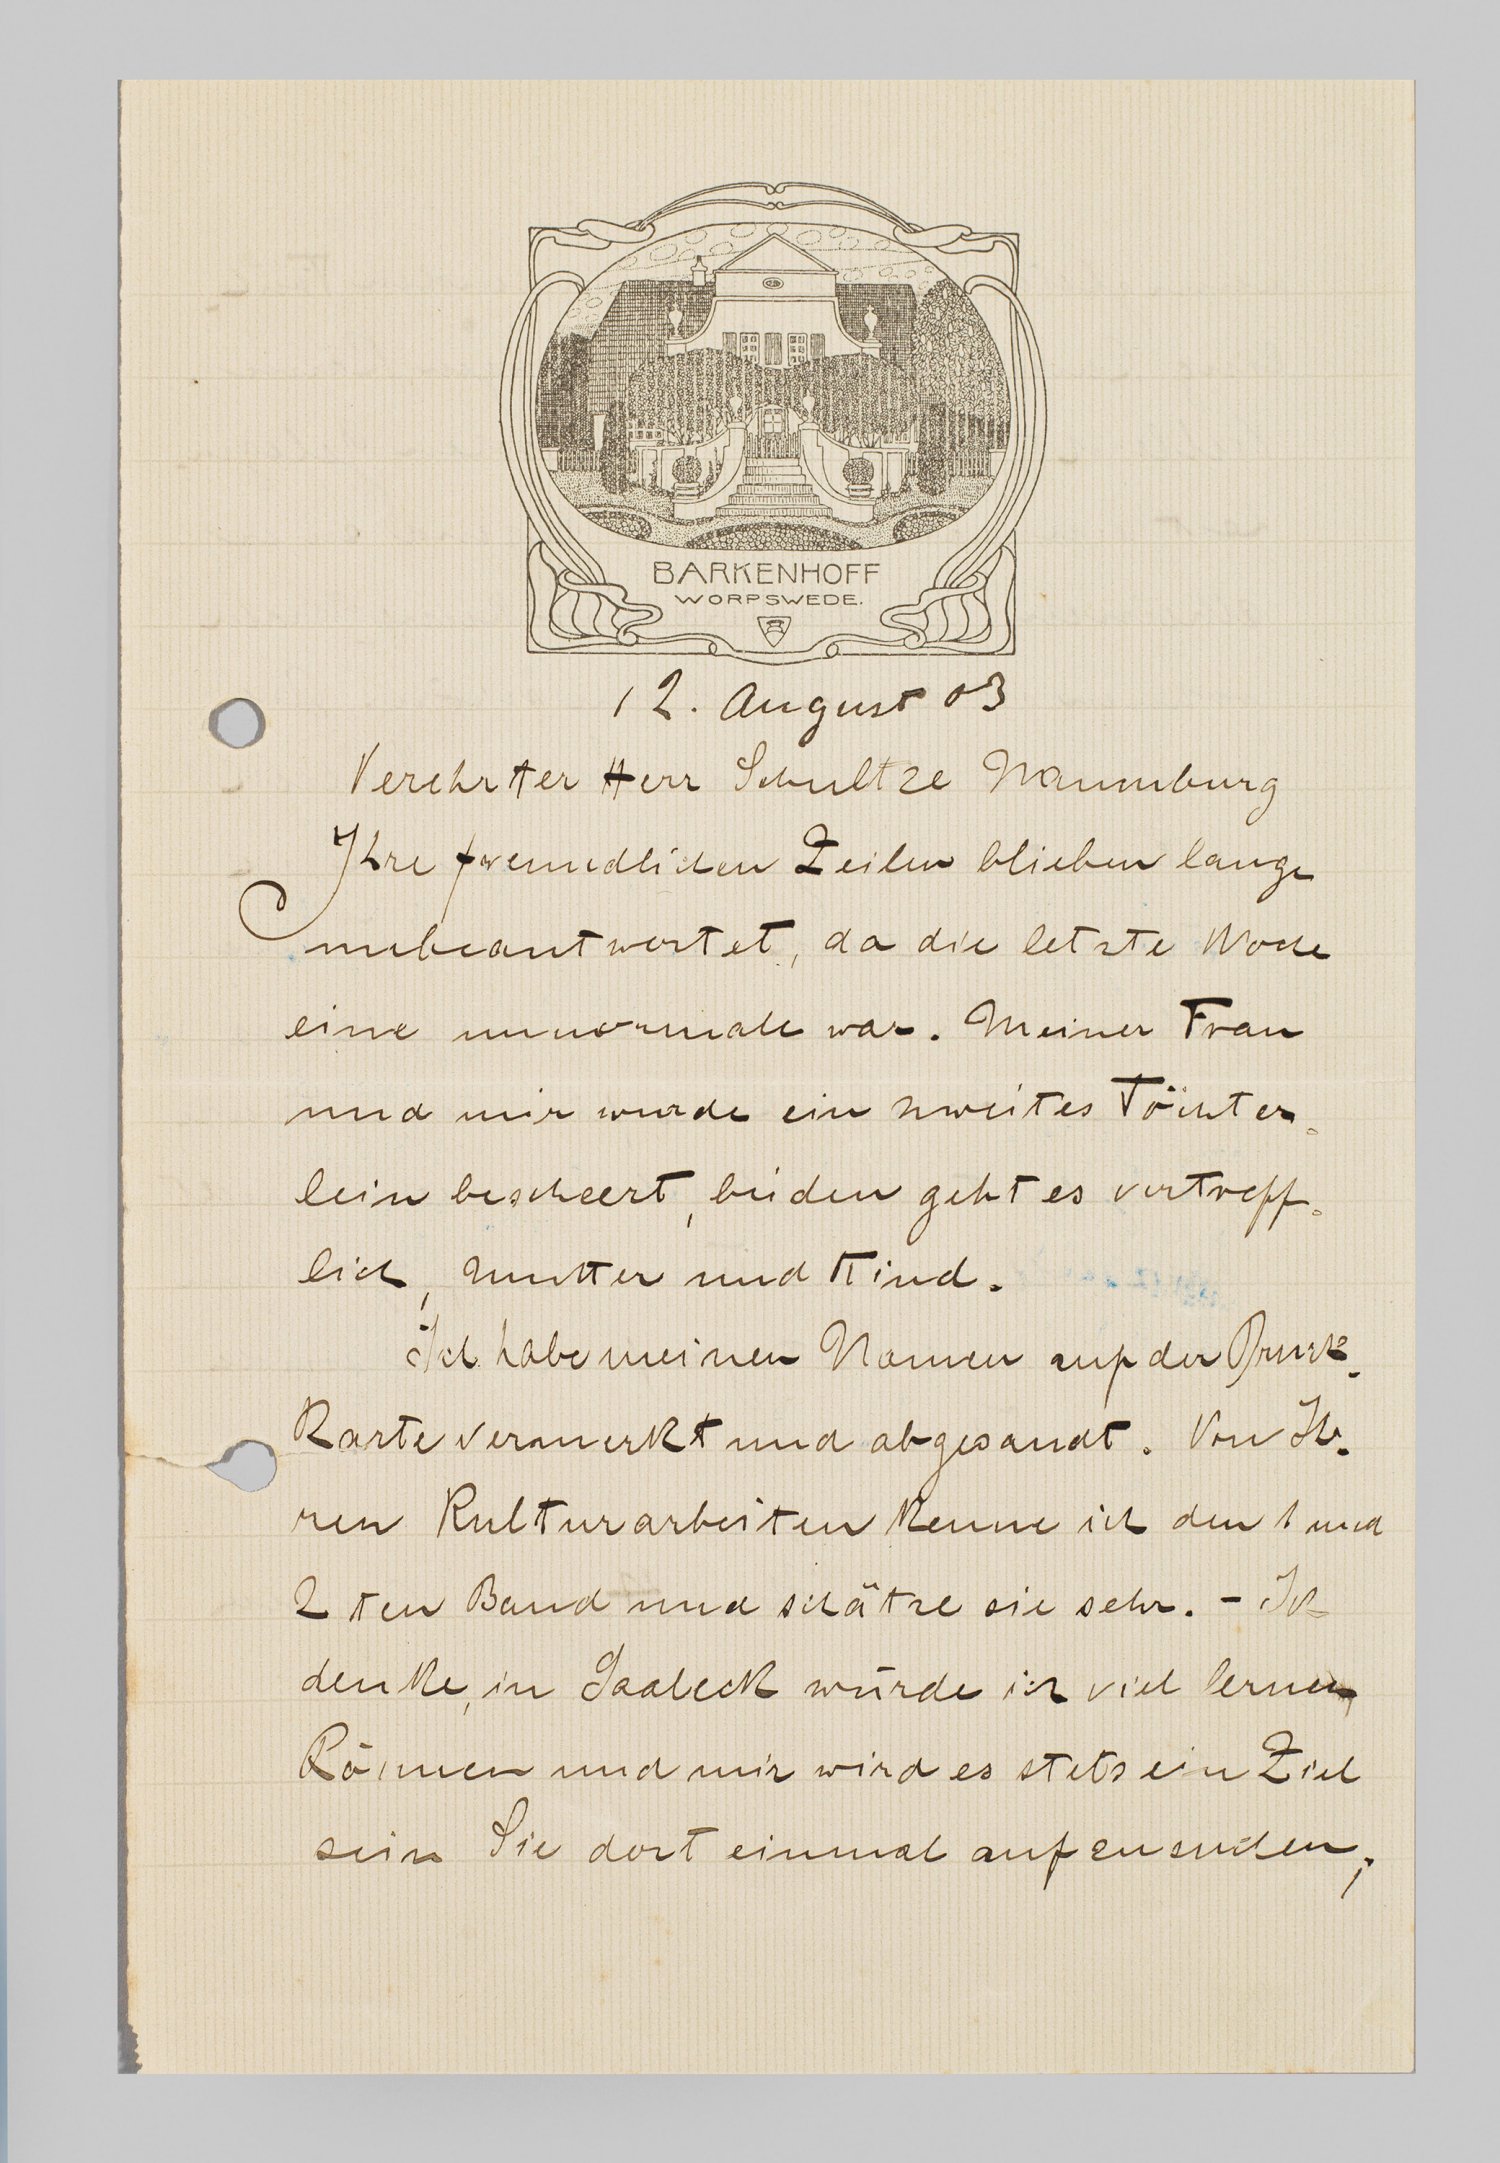 BARKENHOFF
WORPSWEDE.
12. August 03
Verehrter Herr Schultze Naumburg
Ihre freundlichen Zeilen blieben lange
unbeantwortet, da die letzte Woche
eine unnormale war. Meiner Frau
und mir wurde ein zweites Töchter-
lein bescheert, beiden geht es vortreff-
lich, Mutter und Kind.
Ich habe meinen Namen auf der Druck-
Karte vermerkt und abgesandt. Von Ih-
ren Kulturarbeiten kenne ich den 1 und
2ten Band und schätze sie sehr. - Ich
denke, in Saaleck würde ich viel lernen
können und mir wird es stets ein Ziel
sein Sie dort einmal aufzusuchen;